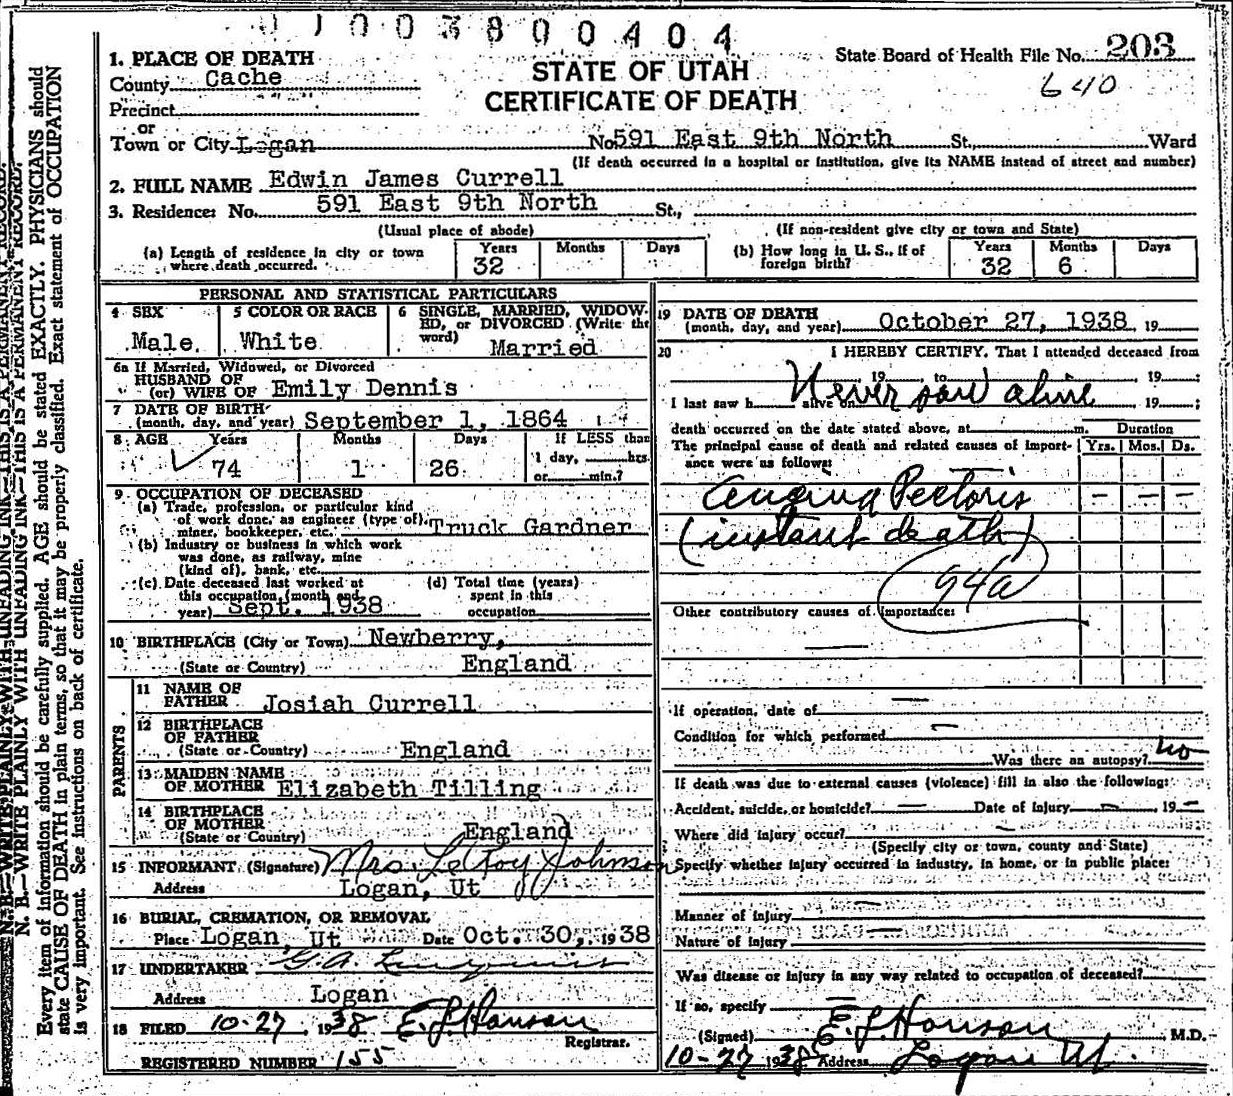 0 1 0 0 3 8 0 0 4 0 4
State Board of Health File No. 203
640
STATE OF UTAH
CERTIFICATE OF DEATH
1. PLACE OF DEATH
County Cache
Precinct
or
Town or City Logan No. 591 East 9th North St., Ward
(If death occurred in a hospital or institution, give its NAME instead of street and number)
2. FULL NAME Edwin James Currell
3. Residence: No. 591 East 9th North St.,
(Usual place of abode) (If non-resident give city or town and State)
(a) Length of residence in city or town where death occurred. Years 32 Months Days
(b) How long in U. S., if of foreign birth? Years 32 Months 6 Days
PERSONAL AND STATISTICAL PARTICULARS
4 SEX Male
5 COLOR OR RACE White
6 SINGLE, MARRIED, WIDOWED, or DIVORCED (Write the word) Married
6a If Married, Widowed, or Divorced
HUSBAND OF
(or) WIFE OF Emily Dennis
7 DATE OF BIRTH
(month, day, and year) September 1, 1864
8 AGE Years 74 Months 1 Days 26 If LESS than 1 day, hrs. or min.?
9 OCCUPATION OF DECEASED
(a) Trade, profession, or particular kind
of work done, as engineer (type of),
miner, bookkeeper, etc. Truck Gardner
(b) Industry or business in which work
was done, as railway, mine
(kind of), bank, etc.
(c) Date deceased last worked at
this occupation (month and
year) Sept. 1938
(d) Total time (years)
spent in this
occupation
10 BIRTHPLACE (City or Town) Newberry,
(State or Country) England
PARENTS
11 NAME OF
FATHER Josiah Currell
12 BIRTHPLACE
OF FATHER
(State or Country) England
13 MAIDEN NAME
OF MOTHER Elizabeth Tilling
14 BIRTHPLACE
OF MOTHER
(State or Country) England
15 INFORMANT (Signature) Mrs. LeRoy Johnson
Address Logan, Ut
16 BURIAL, CREMATION, OR REMOVAL
Place Logan, Ut Date Oct. 30, 1938
17 UNDERTAKER G. A.
Address Logan
18 FILED 10-27, 1938 E. L. Hanson
Registrar.
REGISTERED NUMBER 155
19 DATE OF DEATH
(month, day, and year) October 27, 1938, 19
20 I HEREBY CERTIFY, That I attended deceased from
, 19 , to , 19 ;
I last saw h alive on Never saw alive , 19 ;
death occurred on the date stated above, at m.
The principal cause of death and related causes of importance were as follows:
Duration
Yrs. Mos. Ds.
Angina Pectoris - - -
(instant death)
94a
Other contributory causes of importance:
If operation, date of —
Condition for which performed —
Was there an autopsy? No
If death was due to external causes (violence) fill in also the following:
Accident, suicide, or homicide? — Date of injury — , 19 —
Where did injury occur?
(Specify city or town, county and State)
Specify whether injury occurred in industry, in home, or in public place:
Manner of injury
Nature of injury
Was disease or injury in any way related to occupation of deceased?
If so, specify
(Signed) E. L. Hanson, M.D.
10-27 1938 Address Logan Ut.
N. B.—WRITE PLAINLY WITH UNFADING INK—THIS IS A PERMANENT RECORD.
N. B.—WRITE PLAINLY WITH UNFADING INK—THIS IS A PERMANENT RECORD.
Every item of information should be carefully supplied. AGE should be stated EXACTLY. PHYSICIANS should
state CAUSE OF DEATH in plain terms, so that it may be properly classified. Exact statement of OCCUPATION
is very important. See instructions on back of certificate.